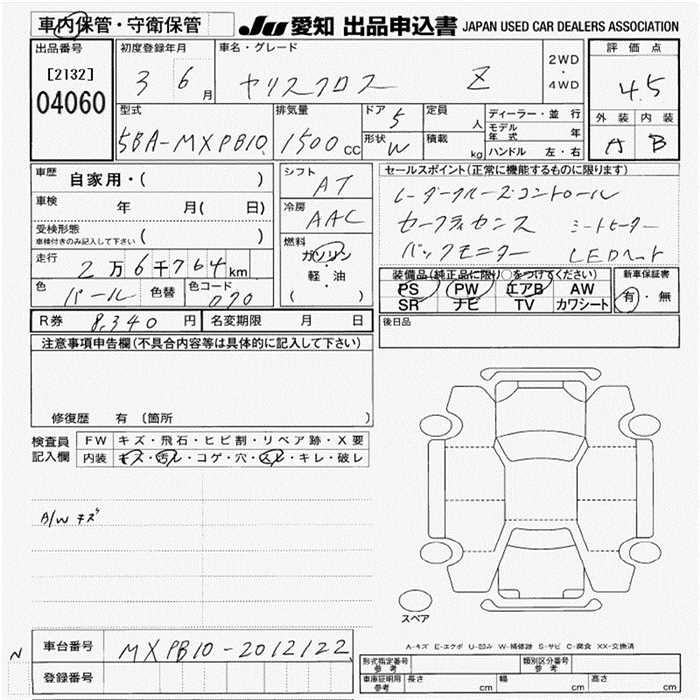 車内保管・守衛保管 JU 愛知 出品申込書 JAPAN USED CAR DEALERS ASSOCIATION
出品番号 初度登録年月 車名・グレード 評価点
[2132] 3 6月 ヤリスクロス Z 2WD・4WD 4.5
04060
型式 排気量 ドア 5 定員 人 ディーラー・並行 外装 内装
5BA-MXPB10 1500cc 形状 W 積載 kg モデル年式 年 A B
ハンドル 左・右
車歴 自家用・( ) シフト AT セールスポイント(正常に機能するものに限ります)
車検 年 月( 日) 冷房 AAC レーダークルーズコントロール
受検形態 ( ) セーフティセンス シートヒーター
車検付きのみ記入して下さい 燃料 ガソリン・軽・油 ( ) バックモニター LEDヘット
走行 2万6千764km 装備品(純正品に限り○をつけてください) 新車保証書
色 パール 色替 色コード 070 PS PW エアB AW 有・無
SR ナビ TV カワシート
R券 8,340円 名変期限 月 日 後日品
注意事項申告欄(不具合内容等は具体的に記入して下さい)
修復歴 有 (箇所 )
検査員 FW キズ・飛石・ヒビ割・リペア跡・X要
記入欄 内装 キズ・汚レ・コゲ・穴・スレ・キレ・破レ
A/W キズ
スペア
A-キズ E-エクボ U-凹み W-補修跡 S-サビ C-腐食 XX-交換済
N 車台番号 MXPB10-2012122
登録番号
形式指定番号 参考 類別区分番号 参考
車庫証明用 参考 長さ cm 幅 cm 高さ cm